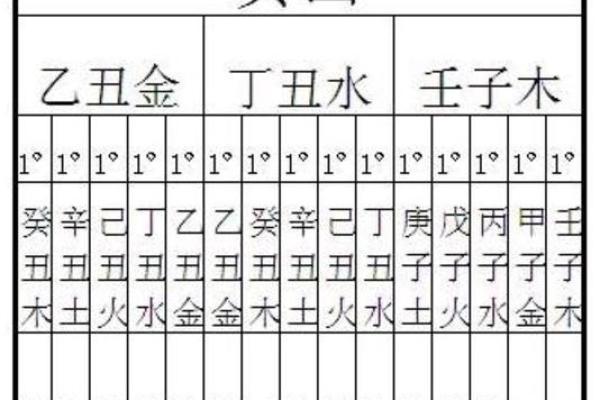 乙丑金 丁丑水 壬子木
1° 1° 1° 1° 1° 1° 1° 1° 1° 1° 1° 1° 1° 1° 1°
癸 辛 己 丁 乙 乙 癸 辛 己 丁 庚 戊 丙 甲 壬
丑 丑 丑 丑 丑 丑 丑 丑 丑 丑 子 子 子 子 子
木 土 火 水 金 金 木 土 火 水 土 火 水 金 木